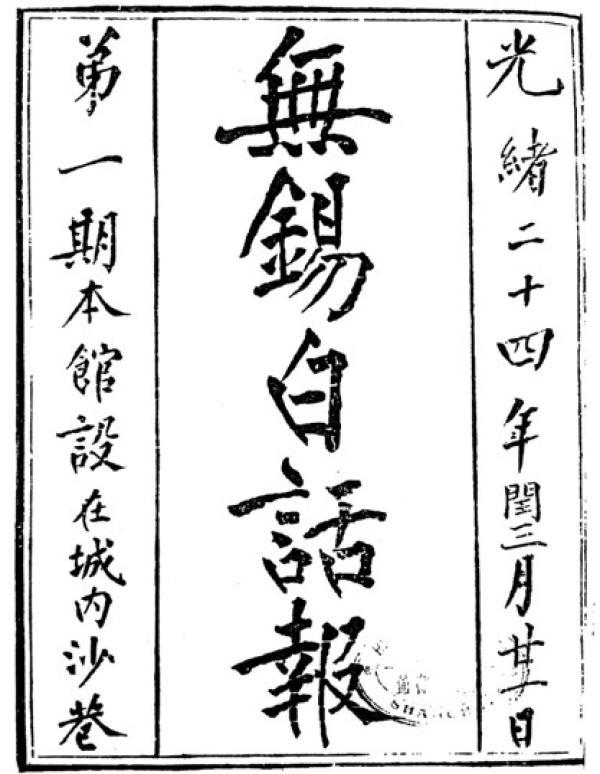 光緒二十四年閏三月廿一日
無錫白話報
第一期本館設在城内沙巷
SHANGH